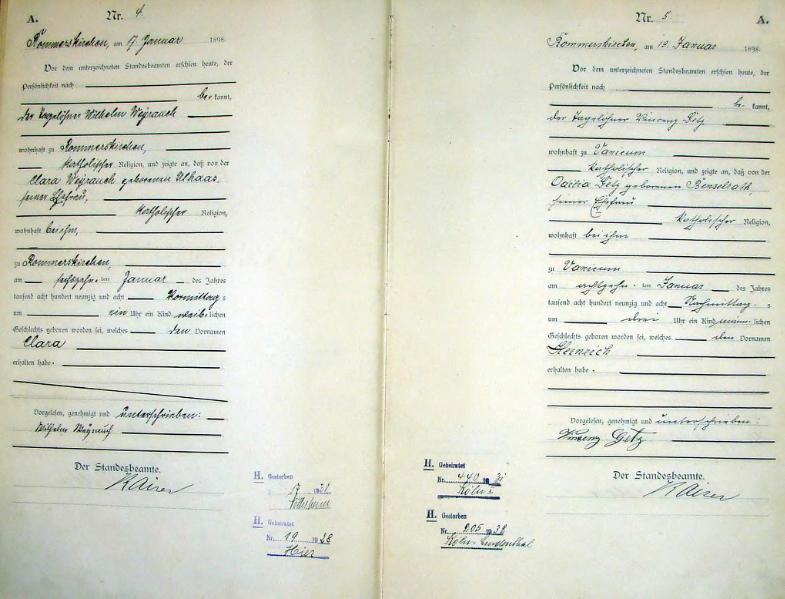 A. Nr. 4.
Rommerskirchen, am 17. Januar 1898.
Vor dem unterzeichneten Standesbeamten erschien heute, der
Persönlichkeit nach
be kannt,
der Tagelöhner Wilhelm Weyrauch
wohnhaft zu Rommerskirchen,
katholischer Religion, und zeigte an, daß von der
Clara Weyrauch geborenen
seiner Ehefrau,
katholischer Religion,
wohnhaft bei ihm,
zu Rommerskirchen,
am sechszehn ten Januar des Jahres
tausend acht hundert neunzig und acht Vormittag s
um ein Uhr ein Kind weib lichen
Geschlechts geboren worden sei, welches den Vornamen
Clara
erhalten habe.
Vorgelesen, genehmigt und unterschrieben:
Wilhelm Weyrauch
Der Standesbeamte.
Kaiser
H. Gestorben
H. Geheiratet
Nr. 19 1938
Hier
Nr. 5 A.
Rommerskirchen, am 19. Januar 1898.
Vor dem unterzeichneten Standesbeamten erschien heute, der
Persönlichkeit nach
be kannt,
der Tagelöhner Vincenz Getz
wohnhaft zu Vanicum
katholischer Religion, und zeigte an, daß von der
Getz geborenen
seiner Ehefrau
katholischer Religion,
wohnhaft bei ihm
zu Vanicum
am achtzehn ten Januar des Jahres
tausend acht hundert neunzig und acht Nachmittag s
um drei Uhr ein Kind männ lichen
Geschlechts geboren worden sei, welches den Vornamen
Heinrich
erhalten habe.
Vorgelesen, genehmigt und unterschrieben:
Vincenz Getz
Der Standesbeamte.
Kaiser
H. Geheiratet
Nr. 440
Köln
H. Gestorben
Nr. 905 1938
Köln-Lindenthal